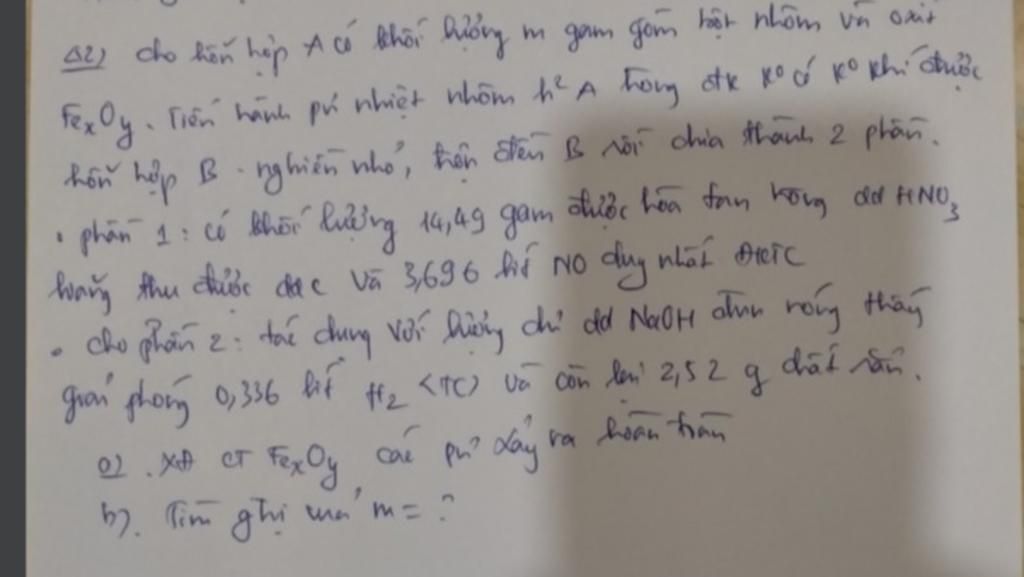 cho hỗn hợp A có khối lượng m gam gồm bột nhôm và oxit
FexOy. Tiến hành pứ nhiệt nhôm h² A trong đk k⁰ có k⁰ khí được
hỗn hợp B. nghiền nhỏ, trộn đều B rồi chia thành 2 phần.
• phần 1: có khối lượng 14,49 gam được hòa tan trong dd HNO3
loãng thu được dd C và 3,696 lít NO duy nhất ĐKTC
• cho phần 2: tác dụng với lượng dư dd NaOH đun nóng thấy
giải phóng 0,336 lít H2 <TC> và còn lại 2,52 g chất rắn.
a). XĐ CT FexOy các pứ xảy ra hoàn toàn
b). Tìm giá m = ?